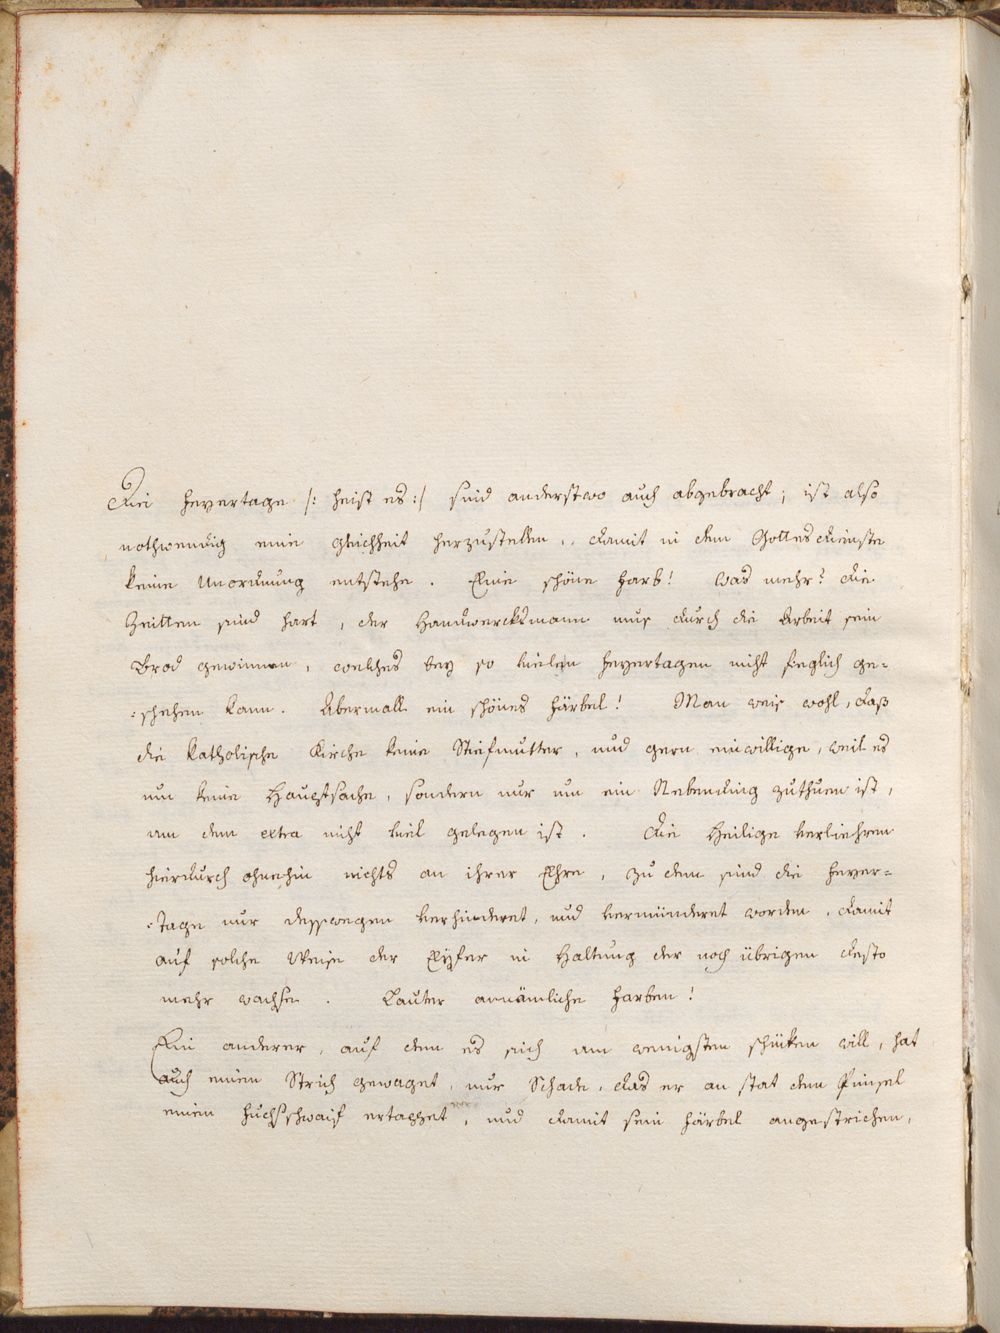 Die Feyertage /: heist es :/ sind anderstwo auch abgebracht; ist also
nothwendig eine Gleichheit herzustellen, damit in dem Gottesdienste
keine Unordnung entstehe. Eine schöne Farb! Was mehr? die
Zeitten sind hart, der Handwercksmann mus durch die Arbeit sein
Brod gewinnen, welches bey so vielen Feyertagen nicht füglich ge=
=schehen kann. Abermall ein schönes Färbel! Man weis wohl, daß
die Katholische Kirche keine Stiefmutter, und gern einwillige, weil es
um keine Hauptsache, sondern nur um ein Nebending zuthuen ist,
an dem extra nicht viel gelegen ist. Die Heilige verliehren
hierdurch ohnehin nichts an ihrer Ehre, zu dem sind die Feyer=
=tage nur desswegen verhinderet, und verminderet worden, damit
auf solche Weise der Eyfer in Haltung der noch übrigen desto
mehr wachse. Lauter annämliche Farben!
Ein anderer, auf dem es sich am wenigsten schicken will, hat
auch einen Strich gewaget, nur Schade, das er an stat dem Pinsel
einen Fuchsschwaif ertappet, und damit sein Färbel angestrichen,